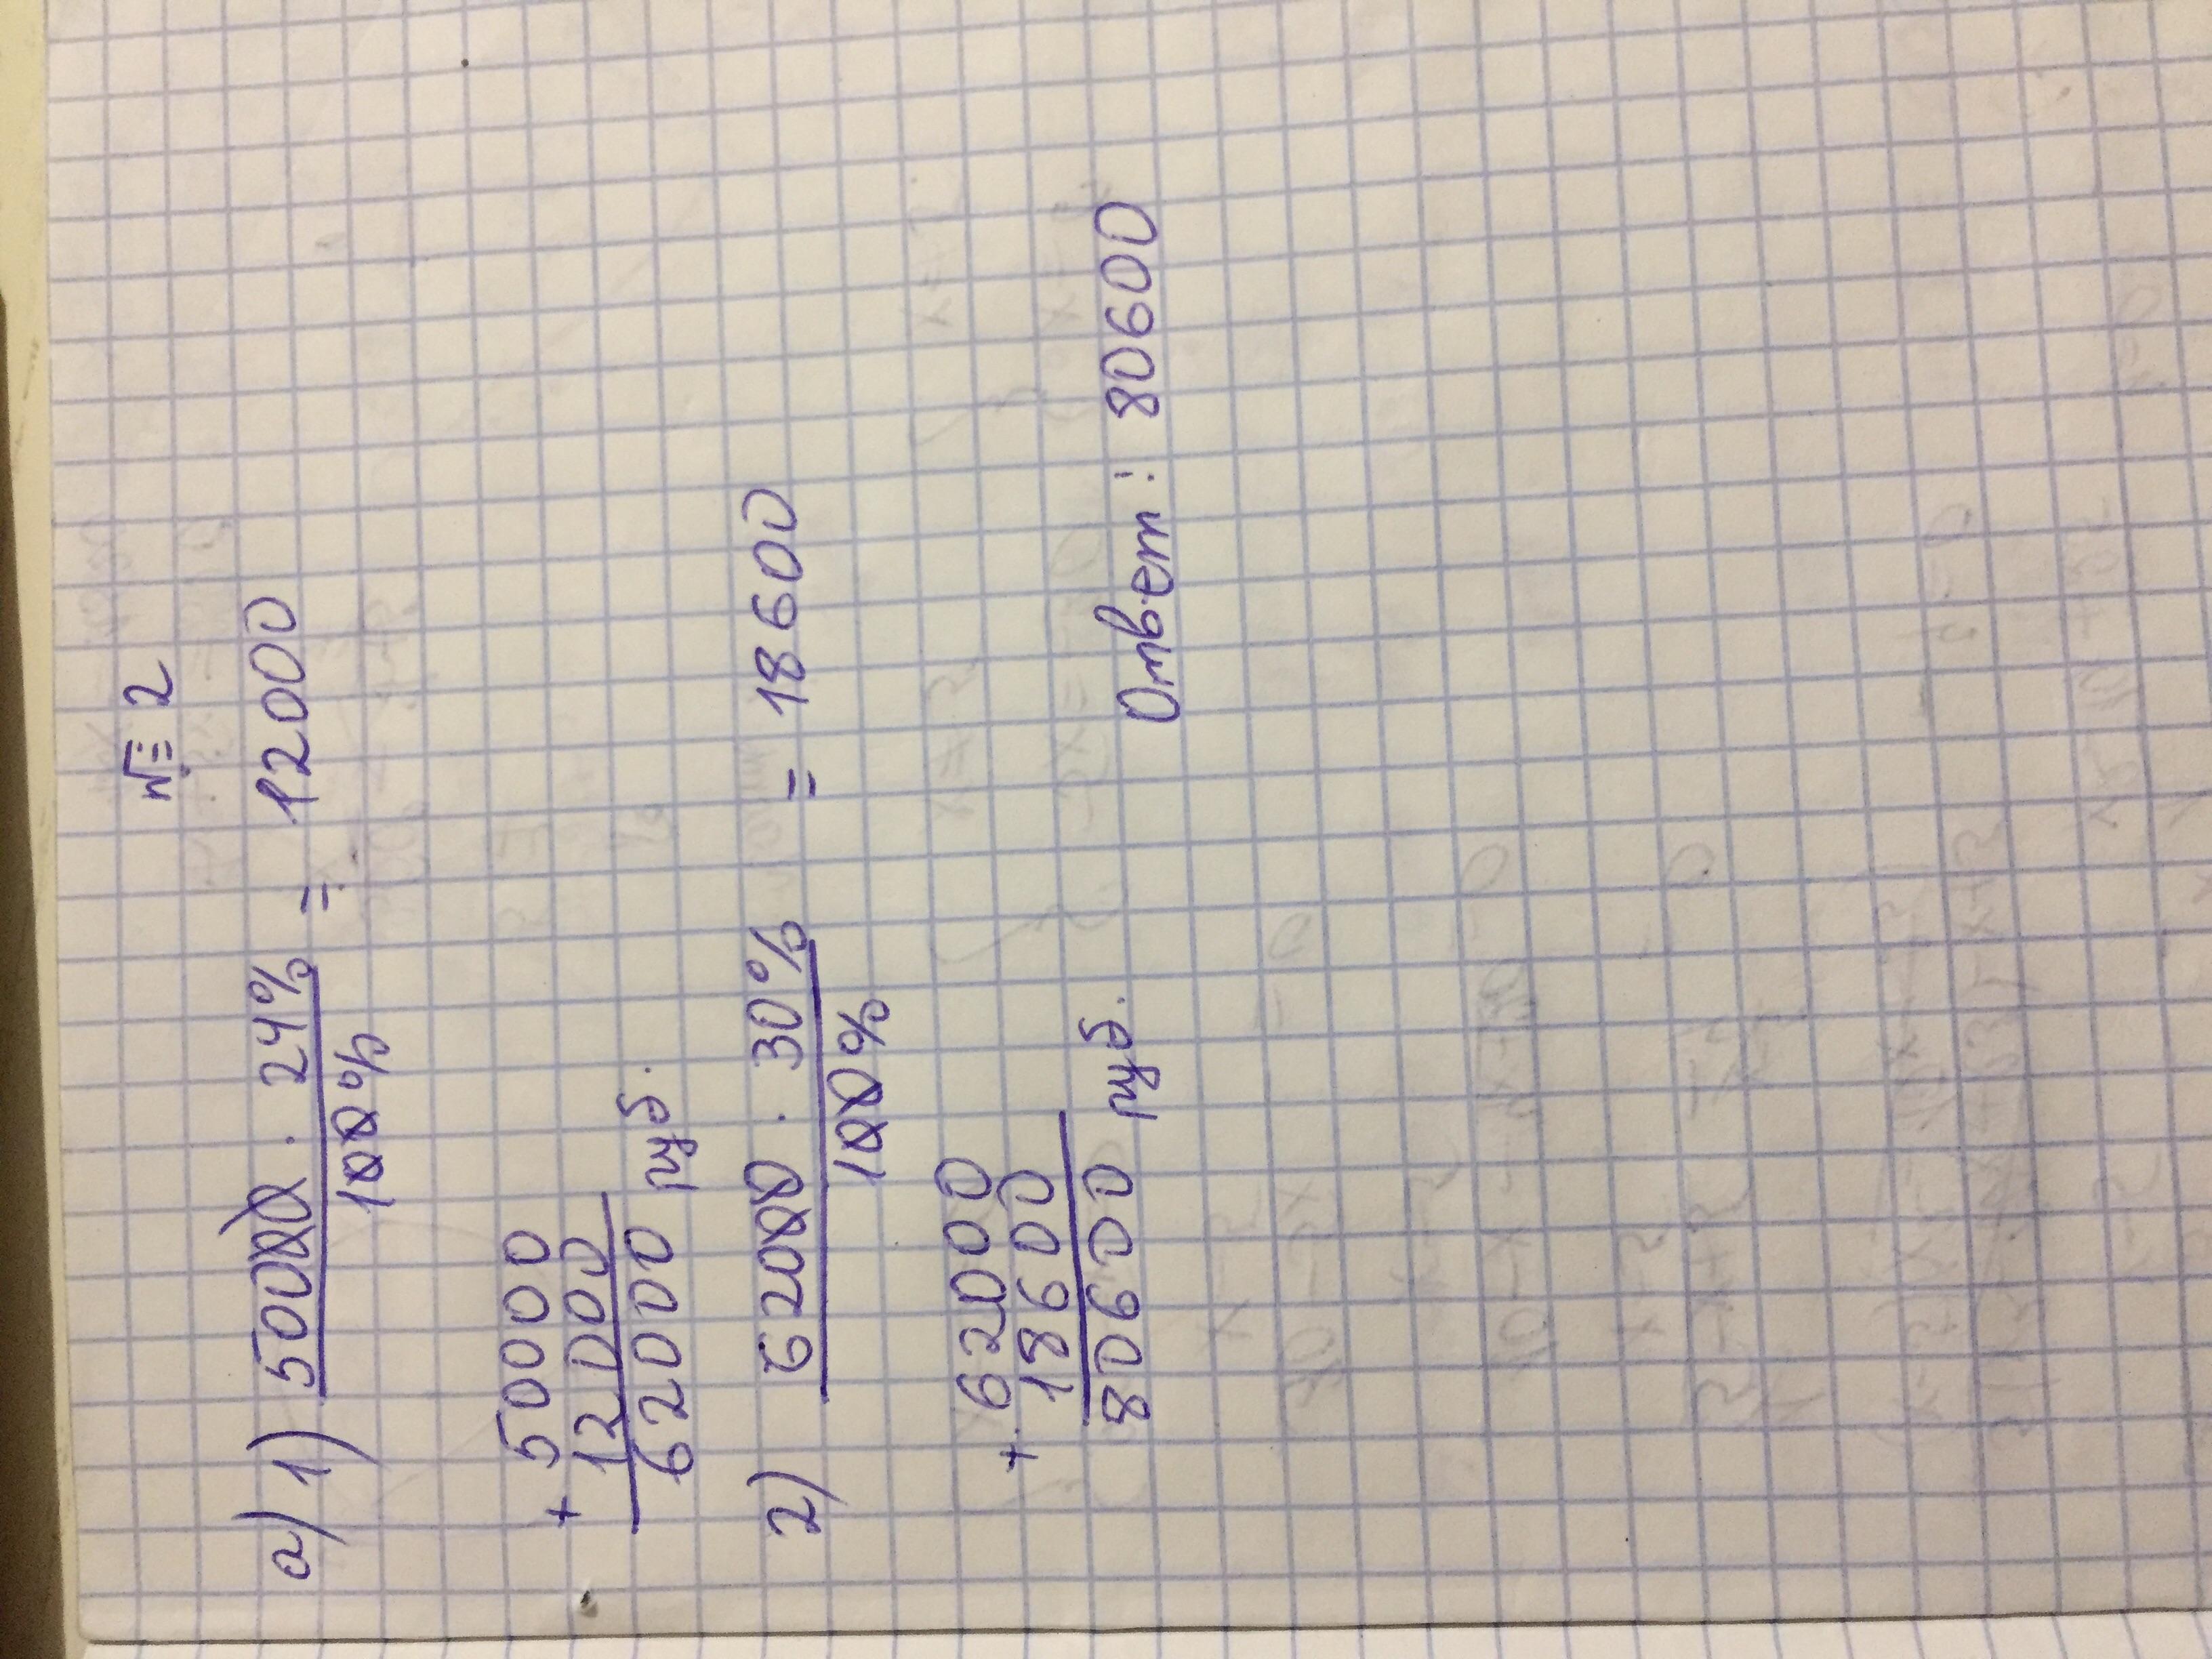 № 2
а) 1) 50000 · 24% = 12000
100%
+ 50000
12000
62000 руб.
2) 62000 · 30% = 18600
100%
+ 62000
18600
80600 руб.
Ответ: 80600